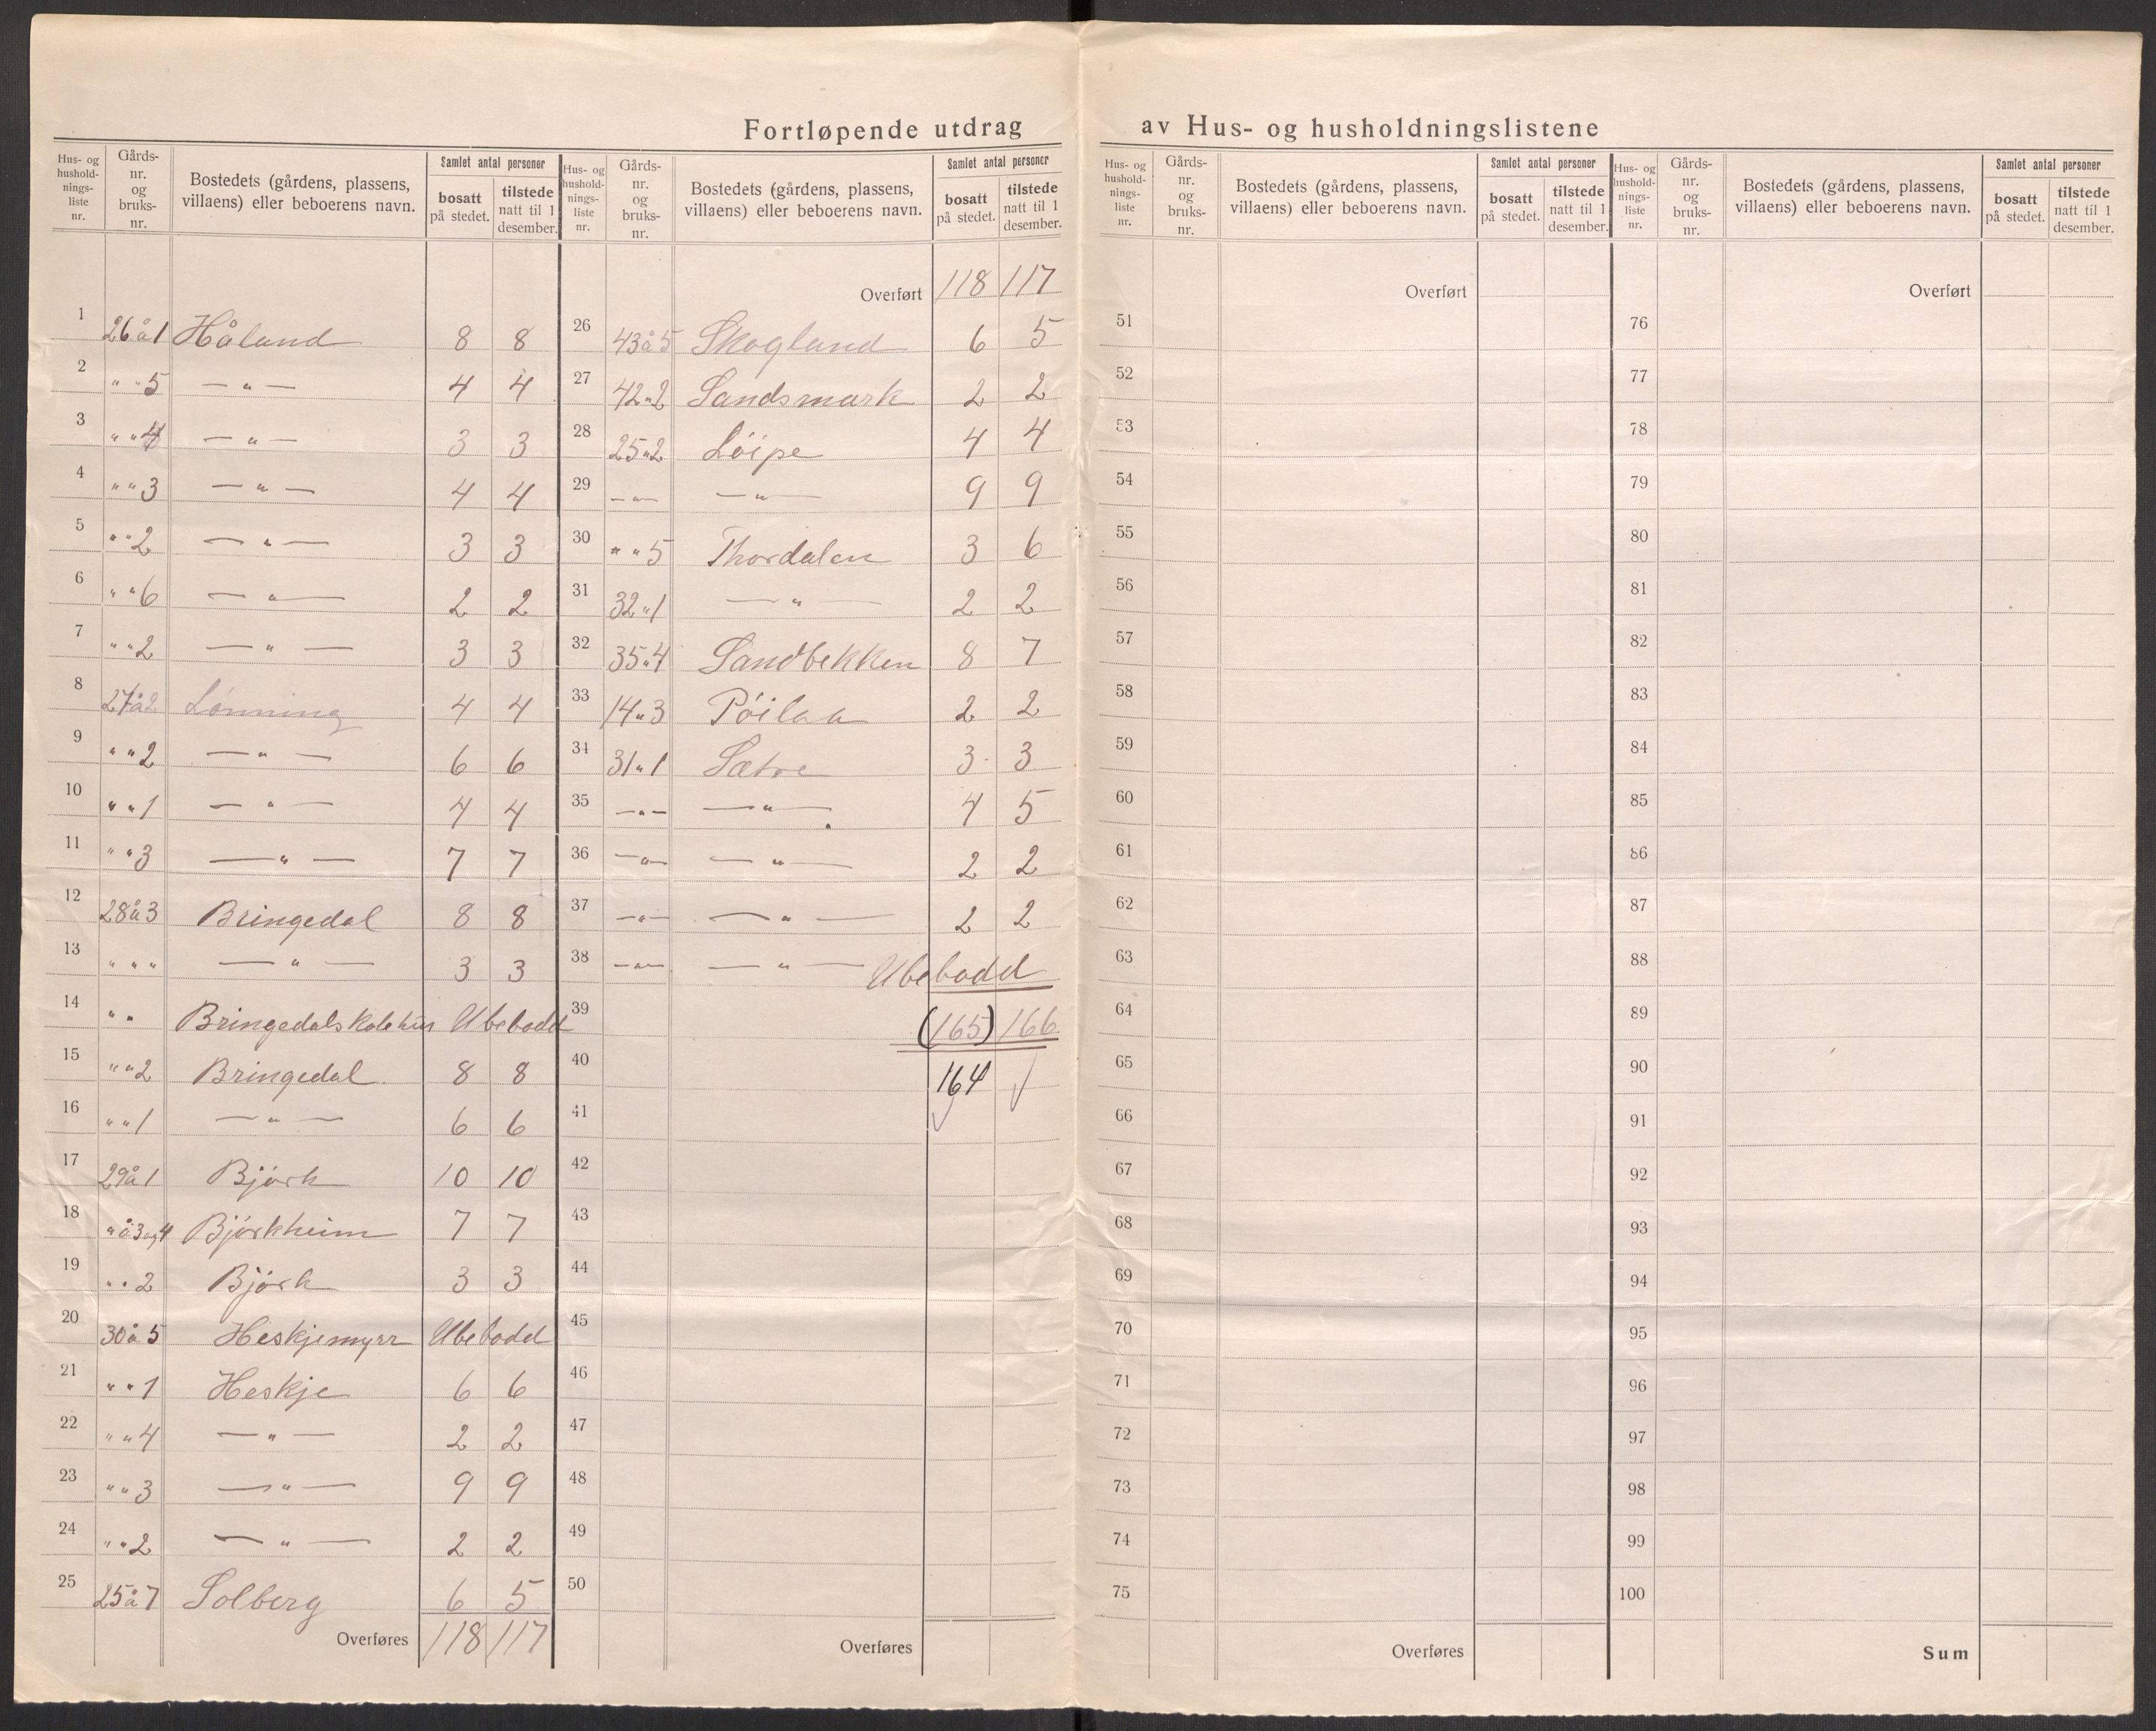 Fortløpende utdrag av Hus- og husholdningslistene
Hus- og hushold-nings-liste nr. Gårds-nr. og bruks-nr. Bostedets (gårdens, plassens, villaens) eller beboerens navn. Samlet antal personer bosatt på stedet. tilstede natt til 1 desember.
1 26 å 1 Håland 8 8
2 " " 5 — " — 4 4
3 " " 4 — " — 3 3
4 " " 3 — " — 4 4
5 " " 2 — " — 3 3
6 " " 6 — " — 2 2
7 " " 2 — " — 3 3
8 27 å 2 Lønning 4 4
9 " " 2 — " — 6 6
10 " " 1 — " — 4 4
11 " " 3 — " — 7 7
12 28 å 3 Bringedal 8 8
13 " " " — " — 3 3
14 " " Bringedalskolehus Ubebodd
15 " " 2 Bringedal 8 8
16 " " 1 — " — 6 6
17 29 å 1 Bjórk 10 10
18 " å 3 og 4 Bjórkheim 7 7
19 " " 2 Bjórk 3 3
20 30 å 5 Heskjemyrr Ubebodd
21 " " 1 Heskje 6 6
22 " " 4 — " — 2 2
23 " " 3 — " — 9 9
24 " " 2 — " — 2 2
25 25 å 7 Solberg 6 5
Overføres 118 117
Hus- og hushold-nings-liste nr. Gårds-nr. og bruks-nr. Bostedets (gårdens, plassens, villaens) eller beboerens navn. Samlet antal personer bosatt på stedet. tilstede natt til 1 desember.
Overført 118 117
26 43 å 5 Skogland 6 5
27 42 " 2 Sandsmark 2 2
28 25 " 2 Lóipe 4 4
29 — " — — " — 9 9
30 " " 5 Thordalen 3 6
31 32 " 1 — " — 2 2
32 35 " 4 Sandbekken 8 7
33 14 " 3 Póilaa 2 2
34 31 " 1 Sætre 3 3
35 — " — — " — 4 5
36 — " — — " — 2 2
37 — " — — " — 2 2
38 — " — — " — Ubebodd
39 (165) 166
40 164 ✓
41
42
43
44
45
46
47
48
49
50
Overføres
Hus- og hushold-nings-liste nr. Gårds-nr. og bruks-nr. Bostedets (gårdens, plassens, villaens) eller beboerens navn. Samlet antal personer bosatt på stedet. tilstede natt til 1 desember.
Overført
51
52
53
54
55
56
57
58
59
60
61
62
63
64
65
66
67
68
69
70
71
72
73
74
75
Overføres
Hus- og hushold-nings-liste nr. Gårds-nr. og bruks-nr. Bostedets (gårdens, plassens, villaens) eller beboerens navn. Samlet antal personer bosatt på stedet. tilstede natt til 1 desember.
Overført
76
77
78
79
80
81
82
83
84
85
86
87
88
89
90
91
92
93
94
95
96
97
98
99
100
Sum